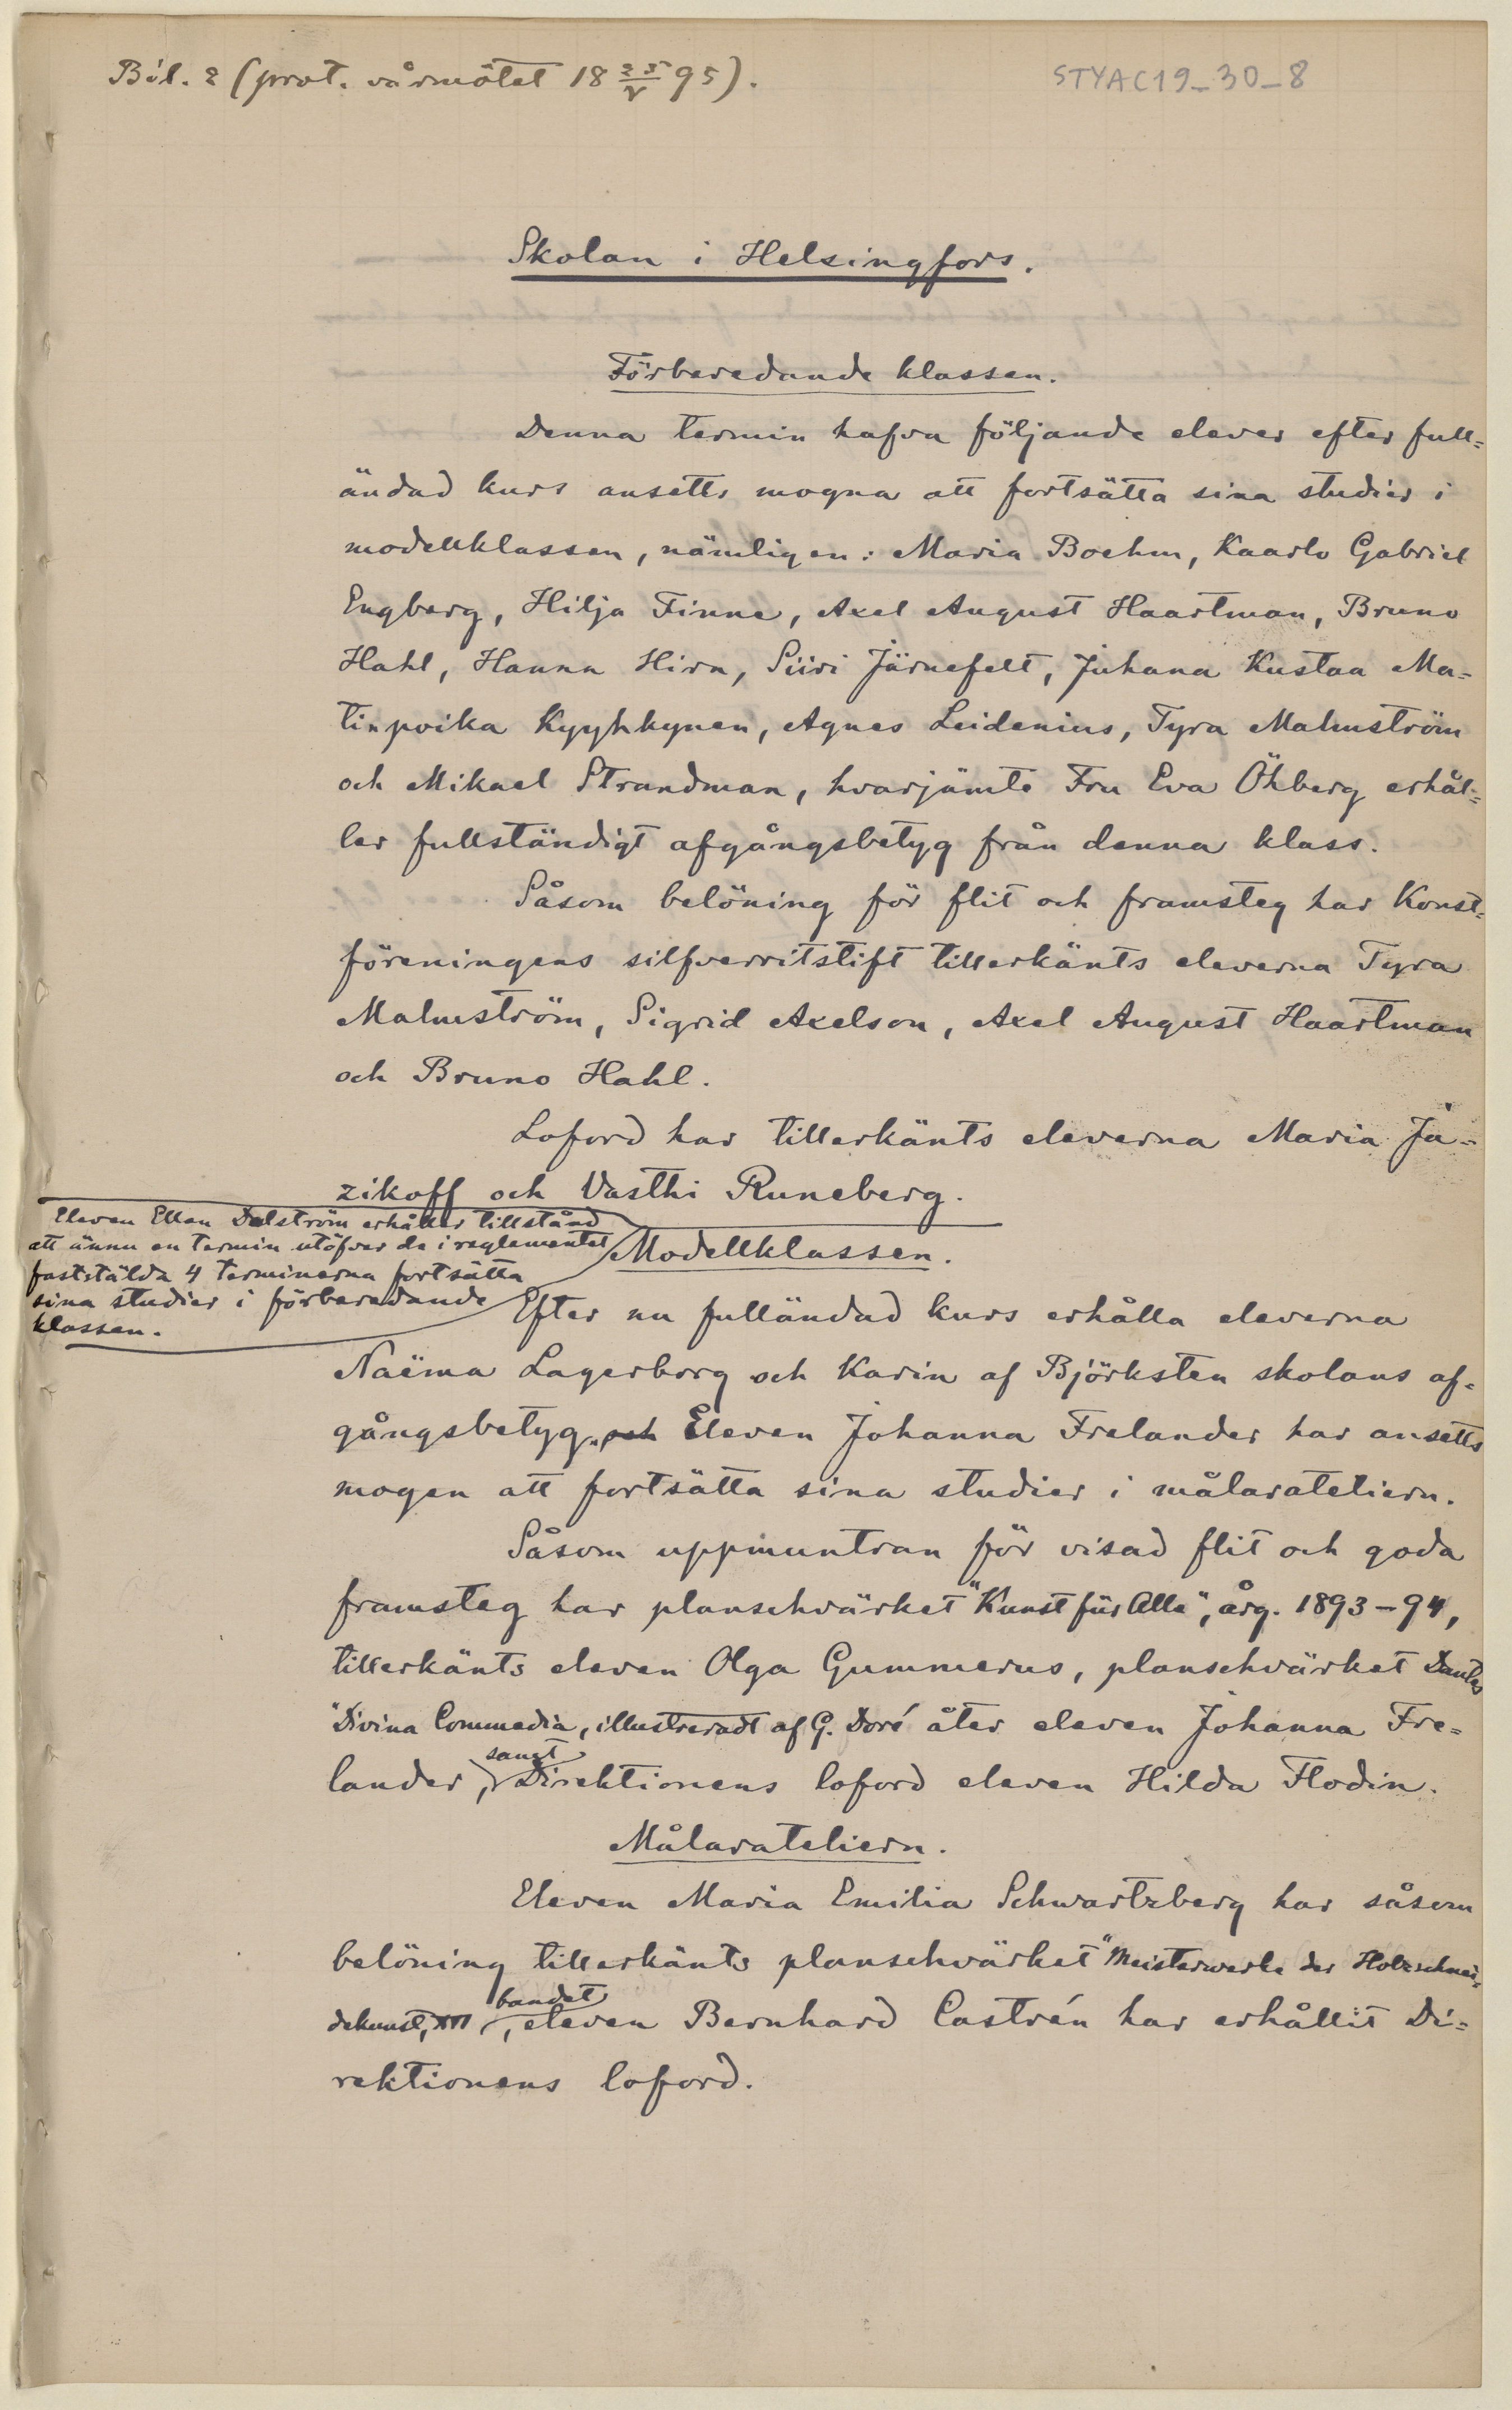 Bil. 2 (prot. vårmötet 18 25/V 95).
STYAC19_30_8
Skolan i Helsingfors.
Förberedande klassen.
Denna termin hafva följande elever efter full=
ändad kurs ansetts mogna att fortsätta sina studier i
modellklassen, nämligen: Maria Boehm, Kaarlo Gabriel
Engberg, Hilja Finne, Axel August Haartman, Bruno
Hahl, Hanna Hirn, Siiri Järnefelt, Juhana Kustaa Ma=
tinpoika Kyyhkynen, Agnes Leidenius, Tyra Malmström
och Mikael Strandman, hvarjämte Fru Eva Öhberg erhål=
ler fullständigt afgångsbetyg från denna klass.
Såsom belöning för flit och framsteg har Konst=
föreningens silfverritstift tillerkänts eleverna Tyra
Malmström, Sigrid Axelson, Axel August Haartman
och Bruno Hahl.
Loford har tillerkänts eleverna Maria Ja=
zikoff och Vasthi Runeberg.
Eleven Ellen Dalström erhåller tillstånd
att ännu en termin utöfver de i reglementet
faststälda 4 terminerna fortsätta
sina studier i förberedande
klassen.
Modellklassen.
Efter nu fulländad kurs erhålla eleverna
Naëma Lagerborg och Karin af Björksten skolans af=
gångsbetyg. och Eleven Johanna Frelander har ansetts
mogen att fortsätta sina studier i målarateliern.
Såsom uppmuntran för visad flit och goda
framsteg har planschvärket "Kunst für Alle", årg. 1893–94,
tillerkänts eleven Olga Gummerus, planschvärket Dantes
"Divina Commedia, illustreradt af G. Doré åter eleven Johanna Fre=
samt
lander, Direktionens loford eleven Hilda Flodin.
Målarateliern.
Eleven Maria Emilia Schwartzberg har såsom
belöning tillerkänts planschvärket "Meisterwerke der Holzschnei=
bandet
dekunst, XVI, eleven Bernhard Castrén har erhållit Di=
rektionens loford.